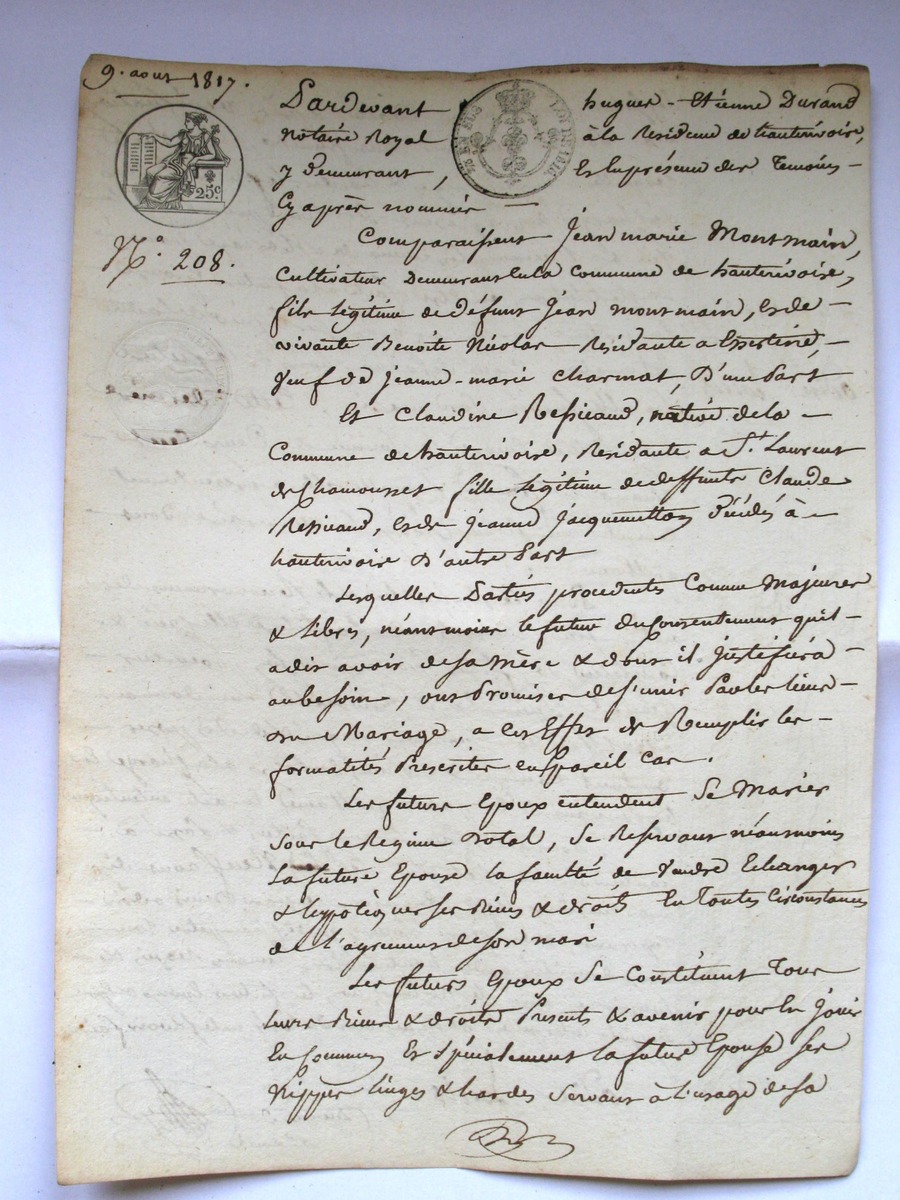 9. aout 1817.
Pardevant hugues - Etienne Durand
notaire Royal à la Residence de hauterivoire,
y demeurant, Et En présence des Temoins -
Cy après nommés -
25c.
N.° 208.
Comparaissent Jean marie Montmain,
Cultivateur Demeurant En la Commune de hauterivoire,
fils légitime de défunt Jean montmain, & de -
vivante Benoite Nicolas Residante a Essertine, -
veuf de Jeanne-marie Charmat, D'une Part
Et Claudine Ressicaud, native de la -
Commune de hauterivoire, Residante a St. Laurent
de Chamousset fille légitime de deffunts Claude
Ressicaud, & de Jeanne Jacquemetton décédés à -
hauterivoire D'autre Part
Lesquelles Parties procedentes Comme Majeures
& libres, néantmoins le futur du Consentement qu'il -
a dit avoir de sa mère & dont il Justifiera -
au besoin, ont Promises de s'unir Par les liens -
du Mariage, a Ces Effet de Remplir les -
formalités Prescrites en Pareil Cas.
Les futurs Epoux entendent Se Marier
Sous le Regime Dotal, Se Reservant néanmoins
La future Epouse la faculté de Vendre Echanger
& hypotéquer ses Biens & droits En Toutes Circonstances
de l'agrement de son mari
Les futurs Epoux Se Constituent Tous
leurs Biens & droits Presents & avenir pour En Jouir
En Commun Et spécialement la future Epouse ses
Nippes linges & hardes Servant à l'usage de sa